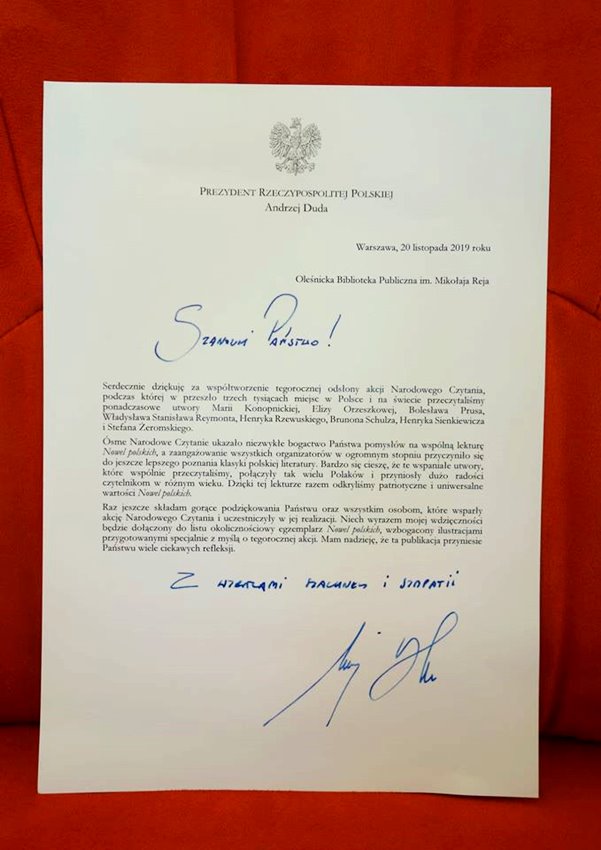 PREZYDENT RZECZYPOSPOLITEJ POLSKIEJ
Andrzej Duda
Warszawa, 20 listopada 2019 roku
Oleśnicka Biblioteka Publiczna im. Mikołaja Reja
Szanowni Państwo!
Serdecznie dziękuję za współtworzenie tegorocznej odsłony akcji Narodowego Czytania,
podczas której w przeszło trzech tysiącach miejsc w Polsce i na świecie przeczytaliśmy
ponadczasowe utwory Marii Konopnickiej, Elizy Orzeszkowej, Bolesława Prusa,
Władysława Stanisława Reymonta, Henryka Rzewuskiego, Brunona Schulza, Henryka Sienkiewicza
i Stefana Żeromskiego.
Ósme Narodowe Czytanie ukazało niezwykłe bogactwo Państwa pomysłów na wspólną lekturę
Nowel polskich, a zaangażowanie wszystkich organizatorów w ogromnym stopniu przyczyniło się
do jeszcze lepszego poznania klasyki polskiej literatury. Bardzo się cieszę, że te wspaniałe utwory,
które wspólnie przeczytaliśmy, połączyły tak wielu Polaków i przyniosły dużo radości
czytelnikom w różnym wieku. Dzięki tej lekturze razem odkryliśmy patriotyczne i uniwersalne
wartości Nowel polskich.
Raz jeszcze składam gorące podziękowania Państwu oraz wszystkim osobom, które wsparły
akcję Narodowego Czytania i uczestniczyły w jej realizacji. Niech wyrazem mojej wdzięczności
będzie dołączony do listu okolicznościowy egzemplarz Nowel polskich, wzbogacony ilustracjami
przygotowanymi specjalnie z myślą o tegorocznej akcji. Mam nadzieję, że ta publikacja przyniesie
Państwu wiele ciekawych refleksji.
Z wyrazami szacunku i sympatii